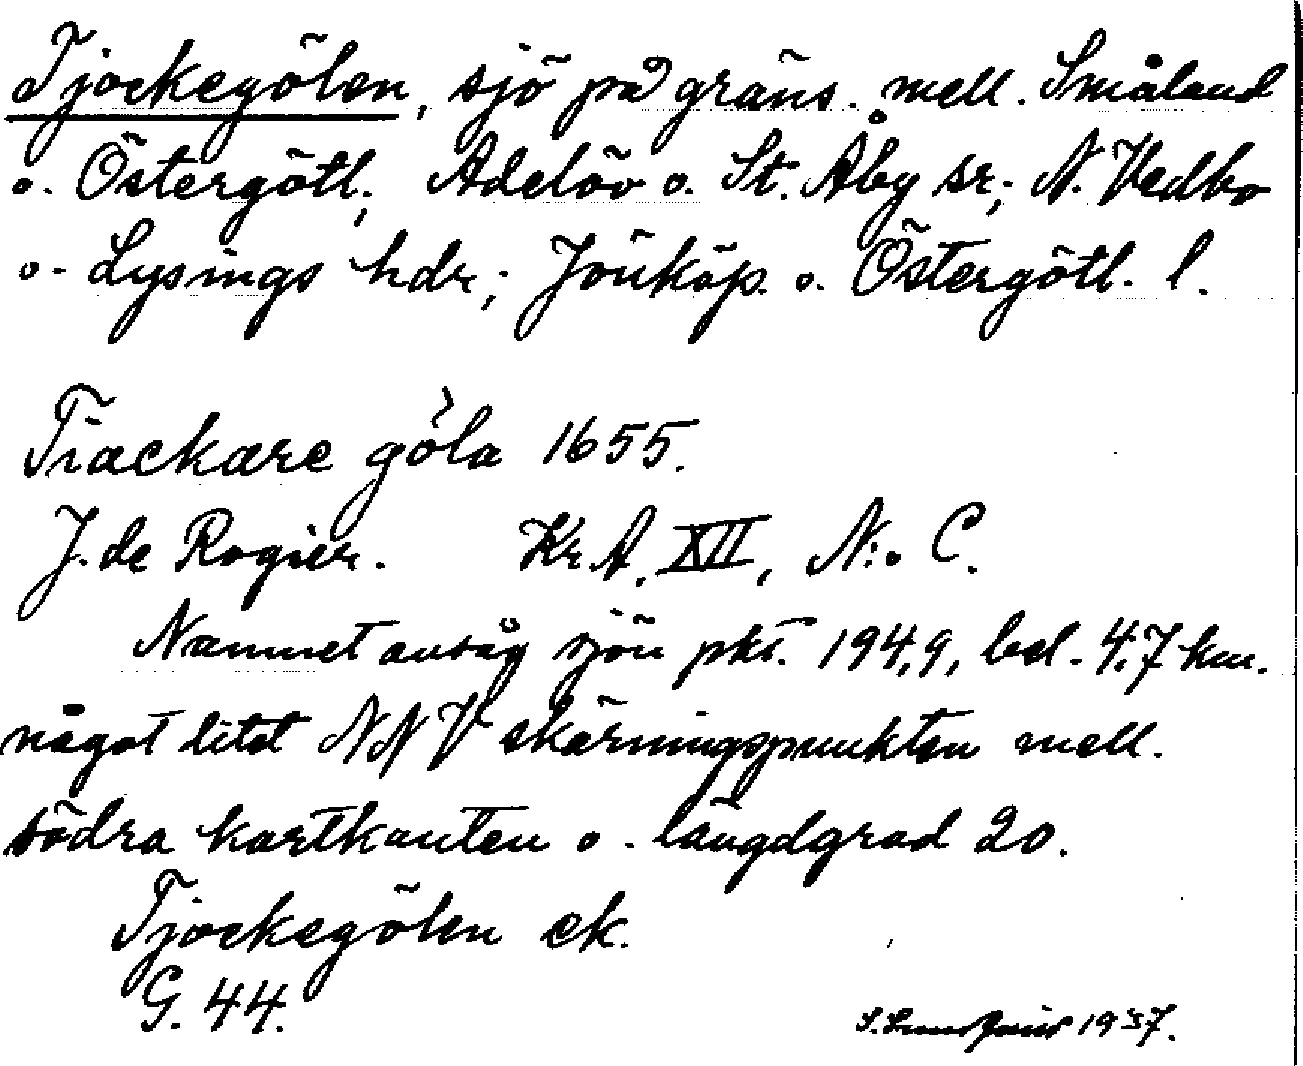 Tjockegölen, sjö på gräns. mell. Småland
o. Östergötl.; Adelöv o. St. Åby sr; N. Vedbo
o. Lysings hdr; Jönköp. o. Östergötl. l.
Tiackare göla 1655.
J. de Rogier. Kr. A. XII, N:o C.
Namnet avsåg sjön pkt. 194,9, bel. 4.7 km.
något litet NNV skärningspunkten mell.
södra kartkanten o. längdgrad 20.
Tjockegölen ek.
G. 44.
1937.